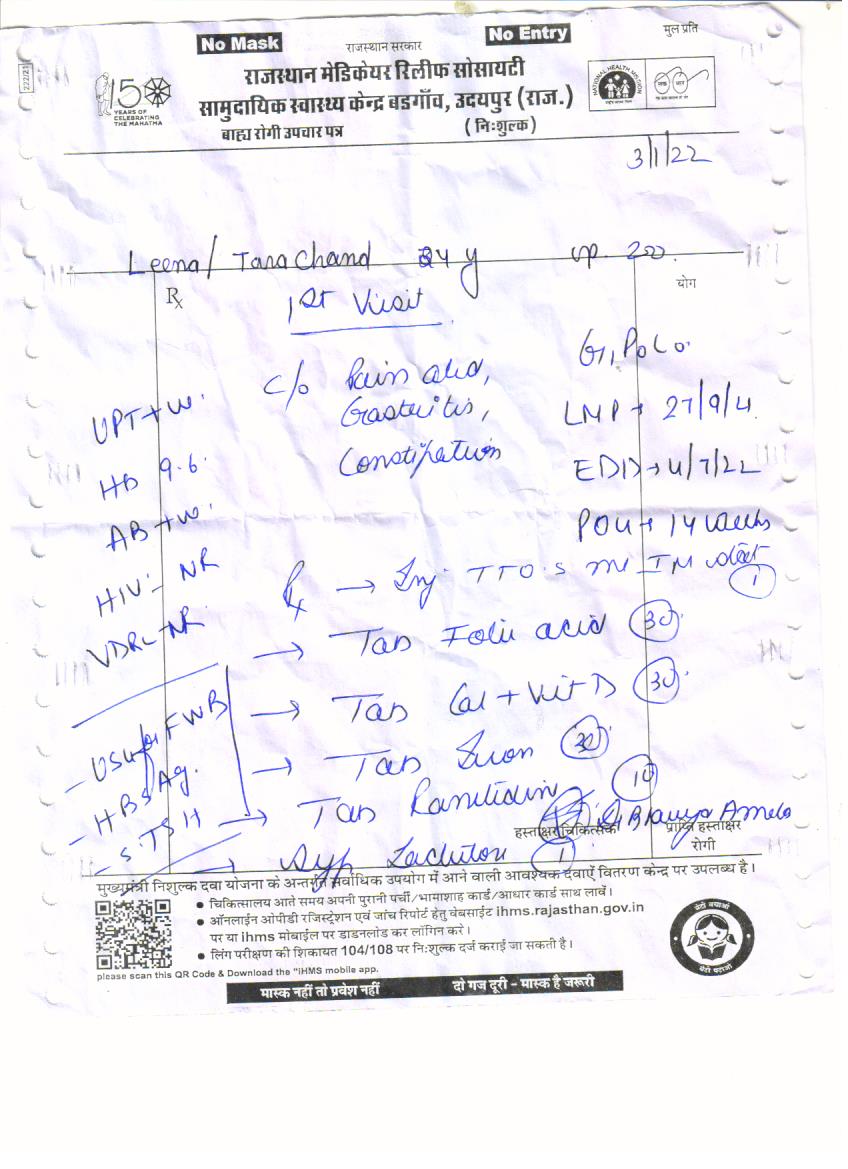 No Mask
राजस्थान सरकार
No Entry
मुल प्रति
222/21
राजस्थान मेडिकेयर रिलीफ सोसायटी
सामुदायिक स्वास्थ्य केन्द्र बडगाँव, उदयपुर (राज.)
बाह्य रोगी उपचार पत्र
(निःशुल्क)
150
YEARS OF
CELEBRATING
THE MAHATMA
NATIONAL HEALTH MISSION
3/1/22
Leena/ Tara Chand 24 y
Rx
योग
1st Visit
G1P0L0
c/o Pain abd,
Gastritis,
Constipation
LMP → 27/9/
EDD → 4/7/22
POG → 14 weeks
UPT +ve
HB 9.6
AB +ve
HIV - NR
VDRL - NR
Rx → Inj. TT 0.5 ml IM stat 1
→ Tab Folic acid 30
→ Tab Cal + Vit D 30
→ Tab Iron 30
→ Tab Ranitidin 10
→ Syp Lactulon 1
- USG for FWB
- HBSAg.
- S. TSH
हस्ताक्षर चिकित्सक
प्राप्ति हस्ताक्षर
रोगी
मुख्यमंत्री निशुल्क दवा योजना के अन्तर्गत सर्वाधिक उपयोग में आने वाली आवश्यक दवाऐं वितरण केन्द्र पर उपलब्ध है।
• चिकित्सालय आते समय अपनी पुरानी पर्ची/भामाशाह कार्ड/आधार कार्ड साथ लावें।
• ऑनलाईन ओपीडी रजिस्ट्रेशन एवं जांच रिपोर्ट हेतु वेबसाईट ihms.rajasthan.gov.in
पर या ihms मोबाईल पर डाडनलोड कर लॉगिन करे।
• लिंग परीक्षण की शिकायत 104/108 पर निःशुल्क दर्ज कराई जा सकती है।
please scan this QR Code & Download the "IHMS mobile app.
बेटी बचाओ
बेटी पढाओ
मास्क नहीं तो प्रवेश नहीं
दो गज दूरी - मास्क है जरूरी